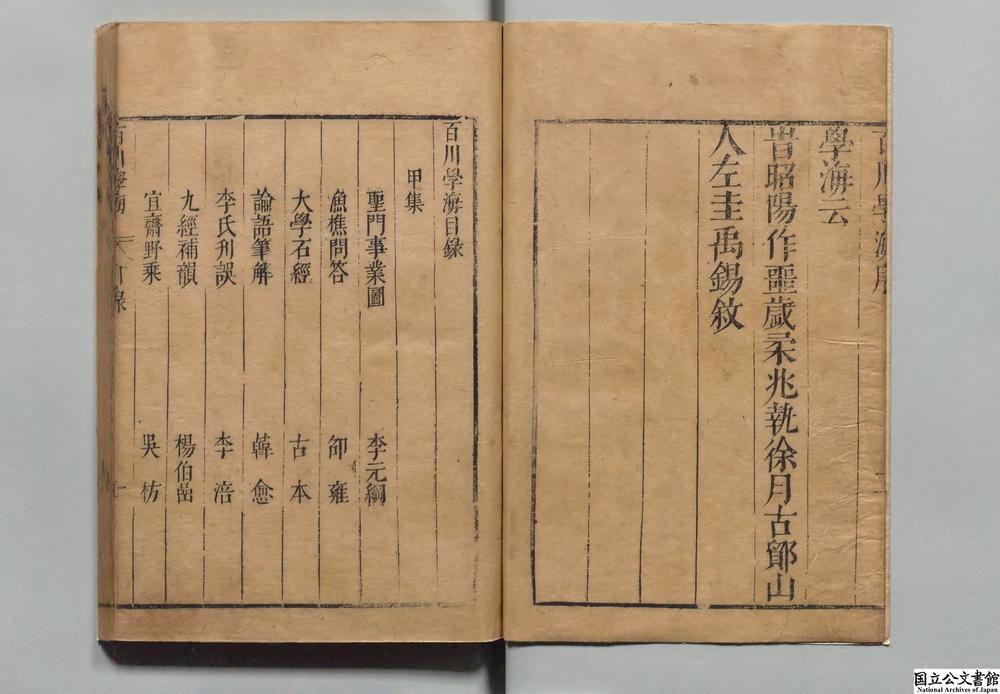 百川學海序
學海云
昔昭陽作噩歲柔兆執徐月古鄮山
人左圭禹錫敘
百川學海目錄
甲集
聖門事業圖 李元綱
漁樵問答 邵雍
大學石經 古本
論語筆解 韓愈
李氏刋誤 李涪
九經補韻 楊伯嵒
宜齋野乘 吳枋
百川學海 目錄 一
国立公文書館
National Archives of Japan